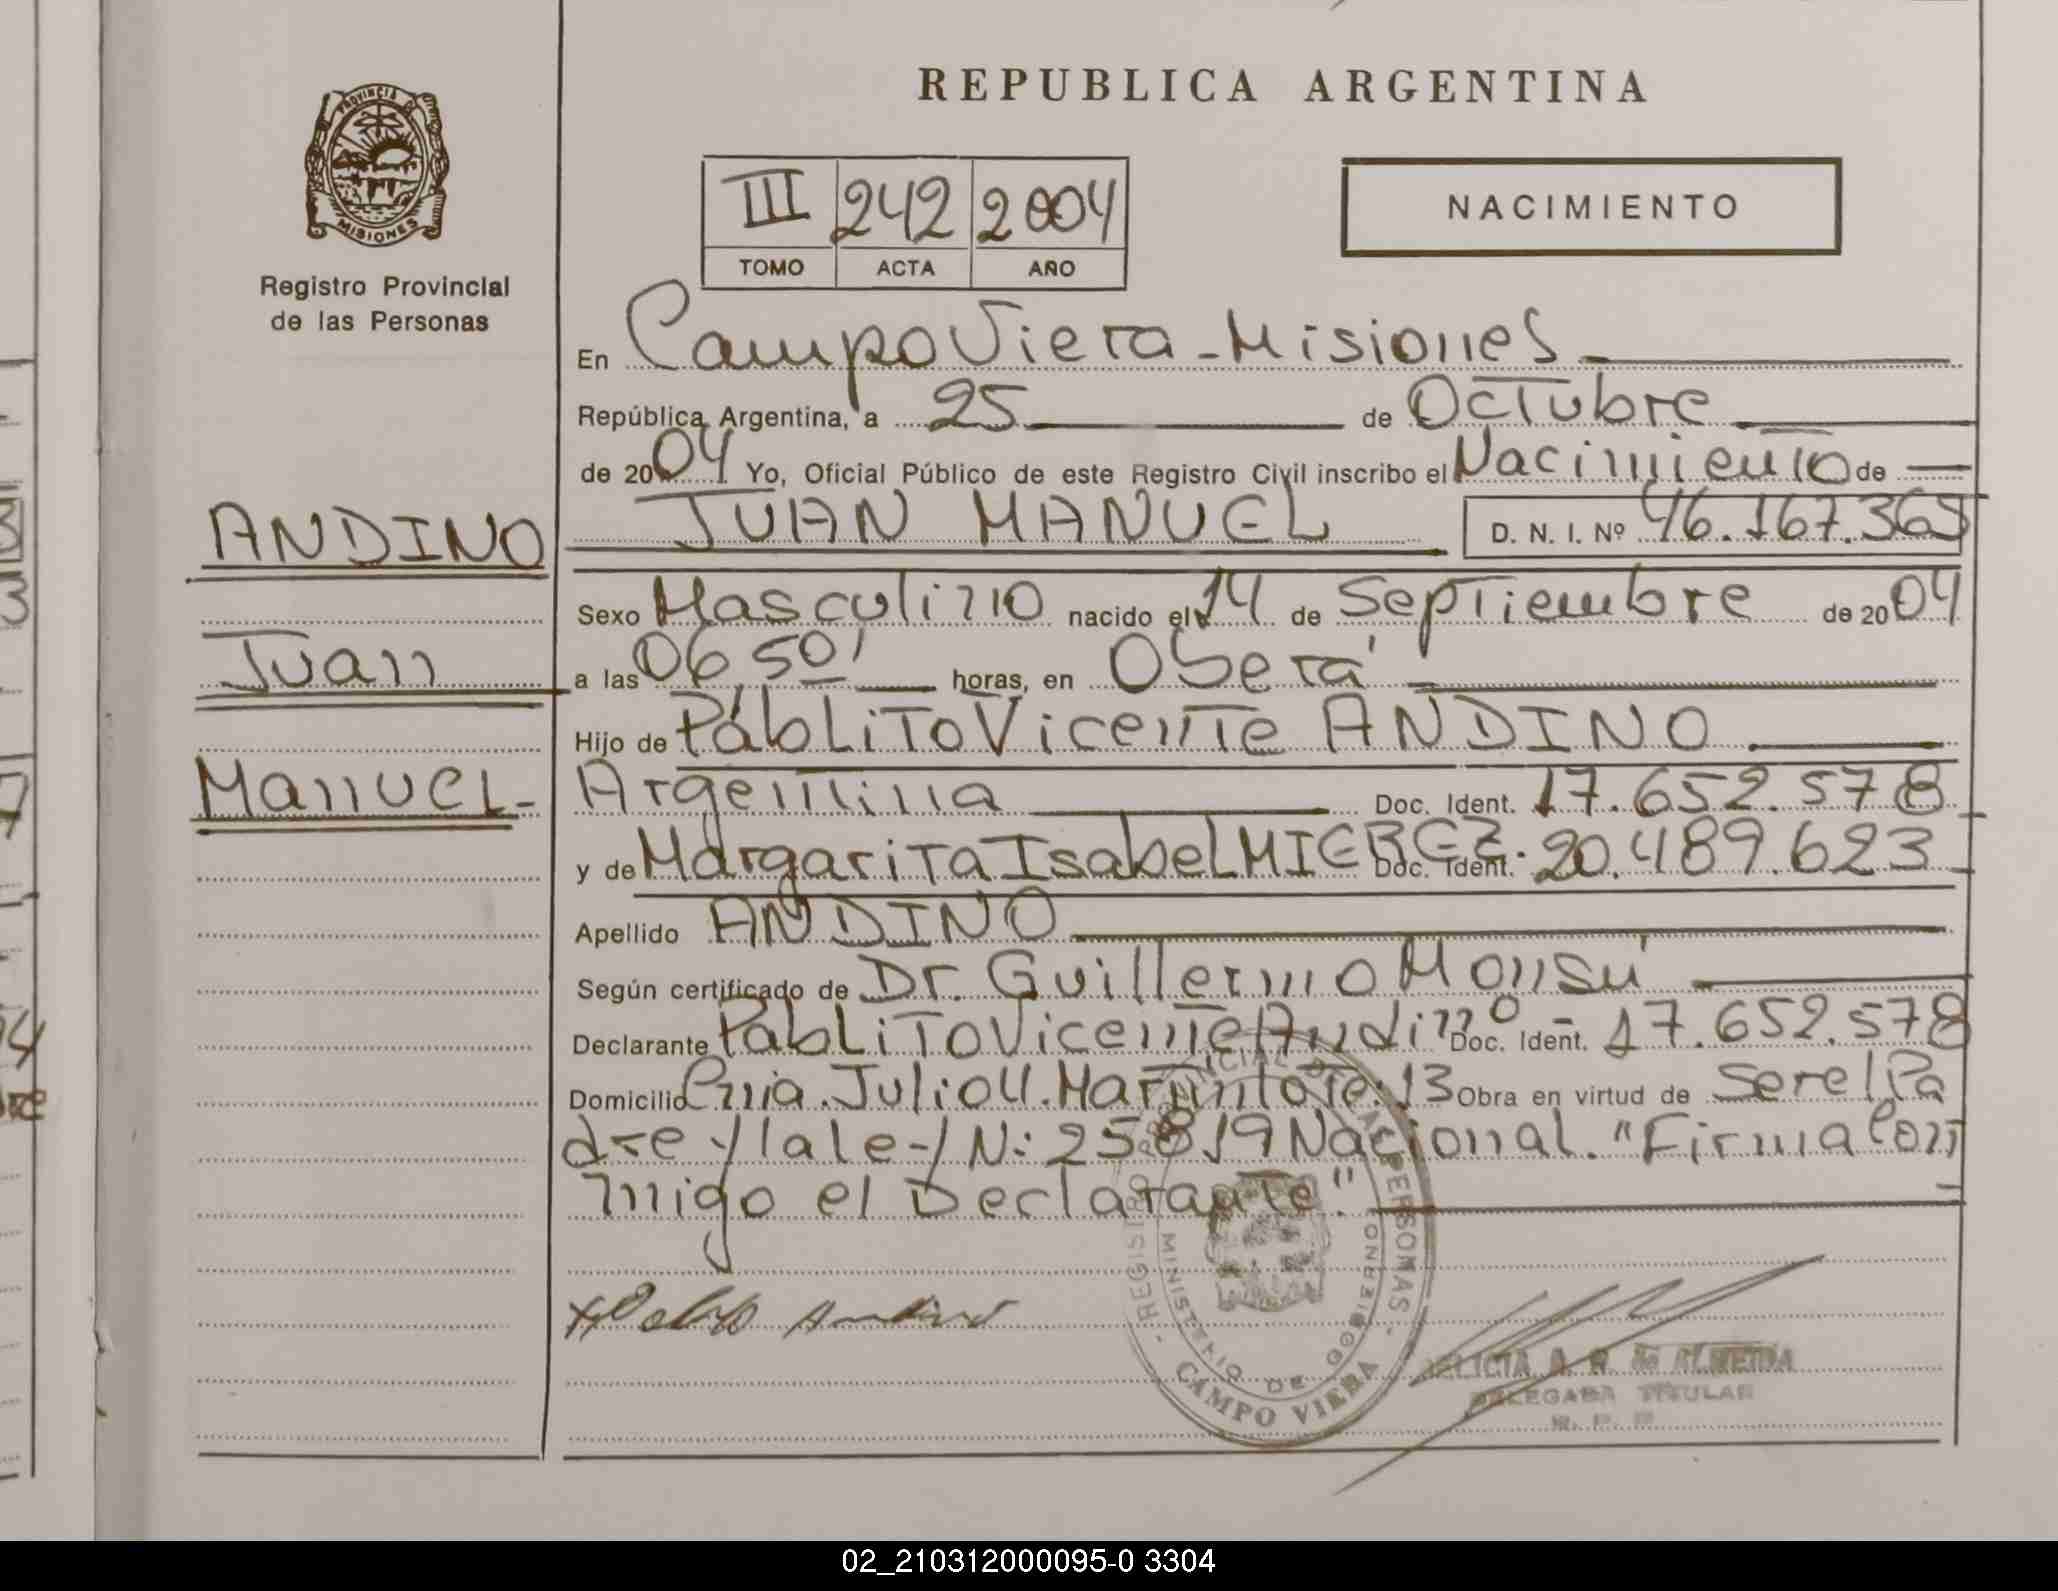 REPUBLICA ARGENTINA
PROVINCIA DE
MISIONES
Registro Provincial
de las Personas
III 242 2004
TOMO ACTA AÑO
NACIMIENTO
En Campo Viera - Misiones
República Argentina, a 25 de Octubre
de 2004 Yo, Oficial Público de este Registro Civil inscribo el Nacimiento de
JUAN MANUEL D. N. I. Nº 46.167.365
ANDINO
Juan
Manuel-
Sexo Masculino nacido el 14 de Septiembre de 2004
a las 06,50' horas, en Oberá
Hijo de Pablito Vicente ANDINO
Argentina Doc. Ident. 17.652.578
y de Margarita Isabel MIEREZ. Doc. Ident. 20.489.623
Apellido ANDINO
Según certificado de Dr. Guillermo Monsú
Declarante Pablito Vicente Andino - Doc. Ident. 17.652.578
Domicilio Julio U. 13 Obra en virtud de Ser el Pa
dre N: 25.819 Nacional. "Firma Con
migo el Declarante".
REGISTRO PROVINCIAL DE LAS PERSONAS
MINISTERIO DE GOBIERNO
CAMPO VIERA
A. R. de ALMEIDA
DELEGADA TITULAR
R. P. P.
02_210312000095-0 3304